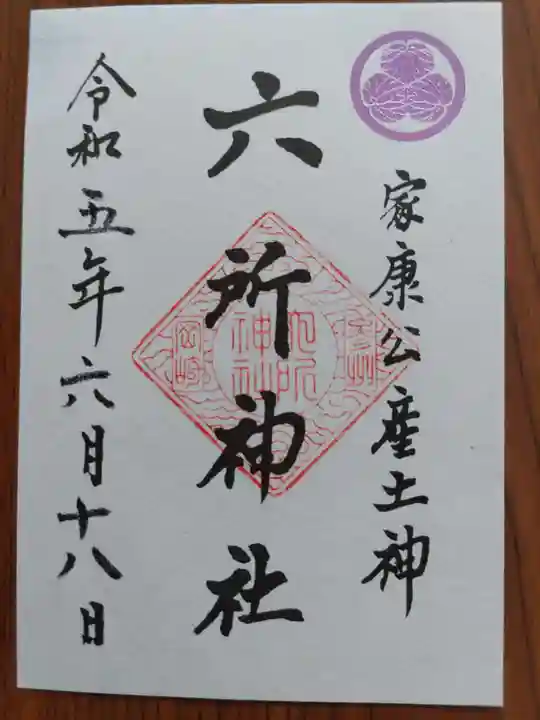 家康公産土神
六所神社
三州
六所
神社
岡崎
令和五年六月十八日